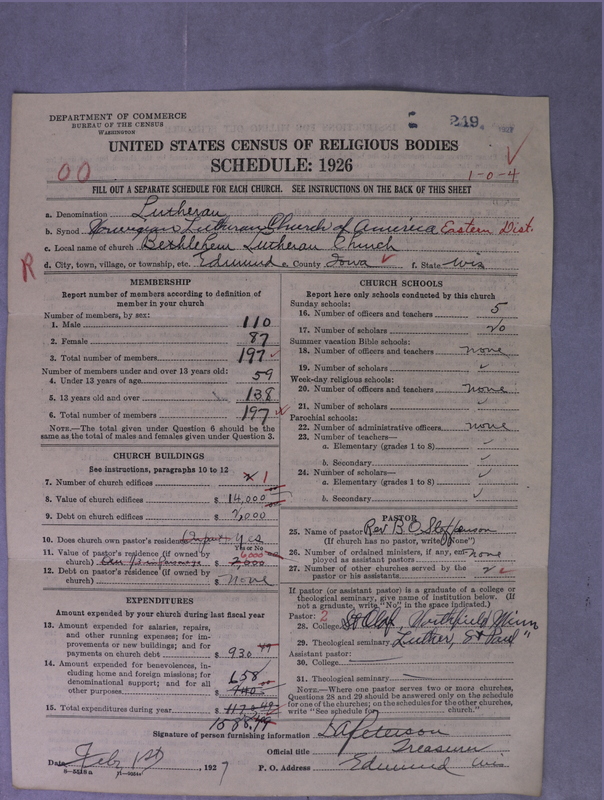 DEPARTMENT OF COMMERCE
BUREAU OF THE CENSUS
WASHINGTON
249
UNITED STATES CENSUS OF RELIGIOUS BODIES
SCHEDULE: 1926
00
1-0-4
FILL OUT A SEPARATE SCHEDULE FOR EACH CHURCH. SEE INSTRUCTIONS ON THE BACK OF THIS SHEET
a. Denomination Lutheran
b. Synod Norwegian Lutheran Church of America Eastern Dist.
c. Local name of church Bethlehem Lutheran Church
R d. City, town, village, or township, etc. Edmund e. County Iowa f. State Wis
MEMBERSHIP
Report number of members according to definition of member in your church
Number of members, by sex:
1. Male 110
2. Female 87
3. Total number of members 197
Number of members under and over 13 years old:
4. Under 13 years of age 59
5. 13 years old and over 138
6. Total number of members 197
NOTE.—The total given under Question 6 should be the
same as the total of males and females given under Question 3.
CHURCH BUILDINGS
See instructions, paragraphs 10 to 12
7. Number of church edifices 1
8. Value of church edifices $ 14,000
9. Debt on church edifices $ 2,000
10. Does church own pastor's residence (In part) Yes
Yes or No
11. Value of pastor's residence (if owned by
church) $ 2,000 6,000
12. Debt on pastor's residence (if owned by
church) $ None
EXPENDITURES
Amount expended by your church during last fiscal year
13. Amount expended for salaries, repairs,
and other running expenses; for im-
provements or new buildings; and for
payments on church debt $ 930.49
14. Amount expended for benevolences, in-
cluding home and foreign missions; for
denominational support; and for all
other purposes $ 658
15. Total expenditures during year $
1588.49
CHURCH SCHOOLS
Report here only schools conducted by this church
Sunday schools:
16. Number of officers and teachers 5
17. Number of scholars 20
Summer vacation Bible schools:
18. Number of officers and teachers none
19. Number of scholars
Week-day religious schools:
20. Number of officers and teachers none
21. Number of scholars
Parochial schools:
22. Number of administrative officers none
23. Number of teachers—
a. Elementary (grades 1 to 8)
b. Secondary
24. Number of scholars—
a. Elementary (grades 1 to 8)
b. Secondary
PASTOR
25. Name of pastor Rev B. O.
(If church has no pastor, write "None")
26. Number of ordained ministers, if any, em-
ployed as assistant pastors none
27. Number of other churches served by the
pastor or his assistants
If pastor (or assistant pastor) is a graduate of a college or
theological seminary, give name of institution below. (If
not a graduate, write "No" in the space indicated.)
Pastor: 2
28. College St Olaf, Northfield Minn
29. Theological seminary Luther, St Paul "
Assistant pastor:
30. College
31. Theological seminary
NOTE.—Where one pastor serves two or more churches,
Questions 28 and 29 should be answered only on the schedule
for one of the churches; on the schedules for the other churches,
write "See schedule for church."
Signature of person furnishing information Peterson
Official title Treasurer
Date Feb 1st, 1927 P. O. Address Edmund Wis
8-5518a